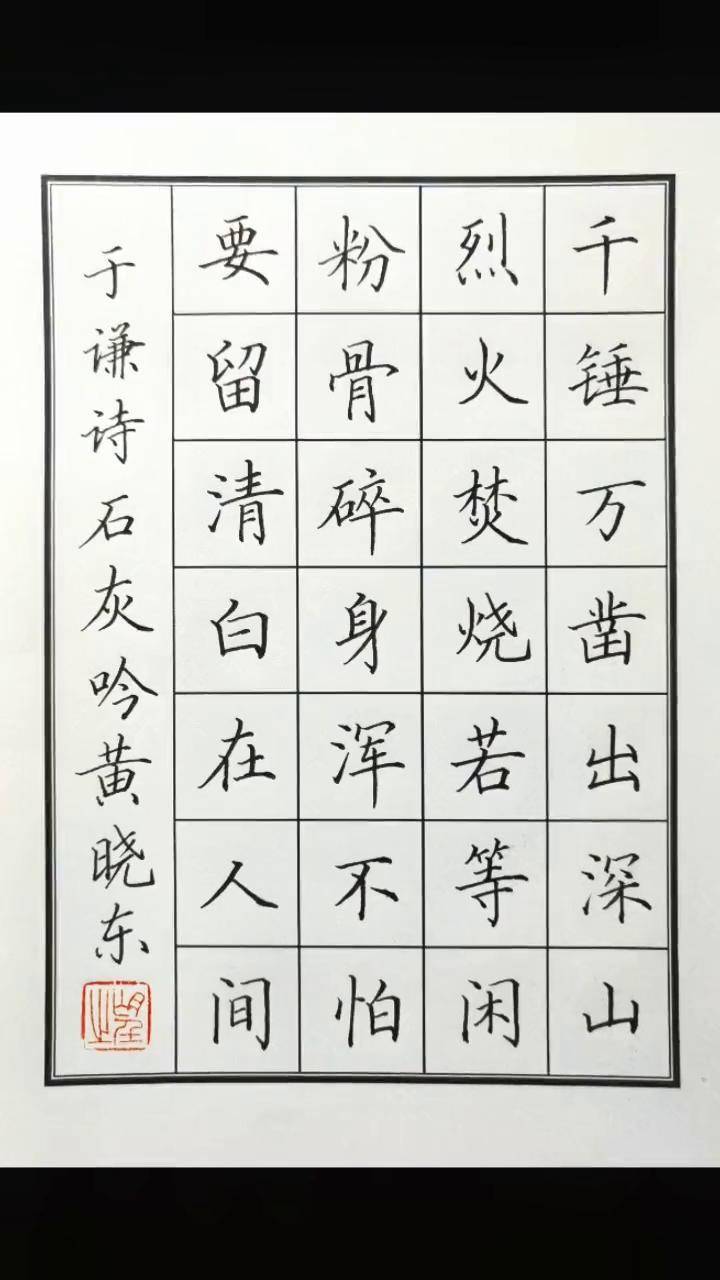 千锤万凿出深山
烈火焚烧若等闲
粉骨碎身浑不怕
要留清白在人间
于谦诗石灰吟黄晓东